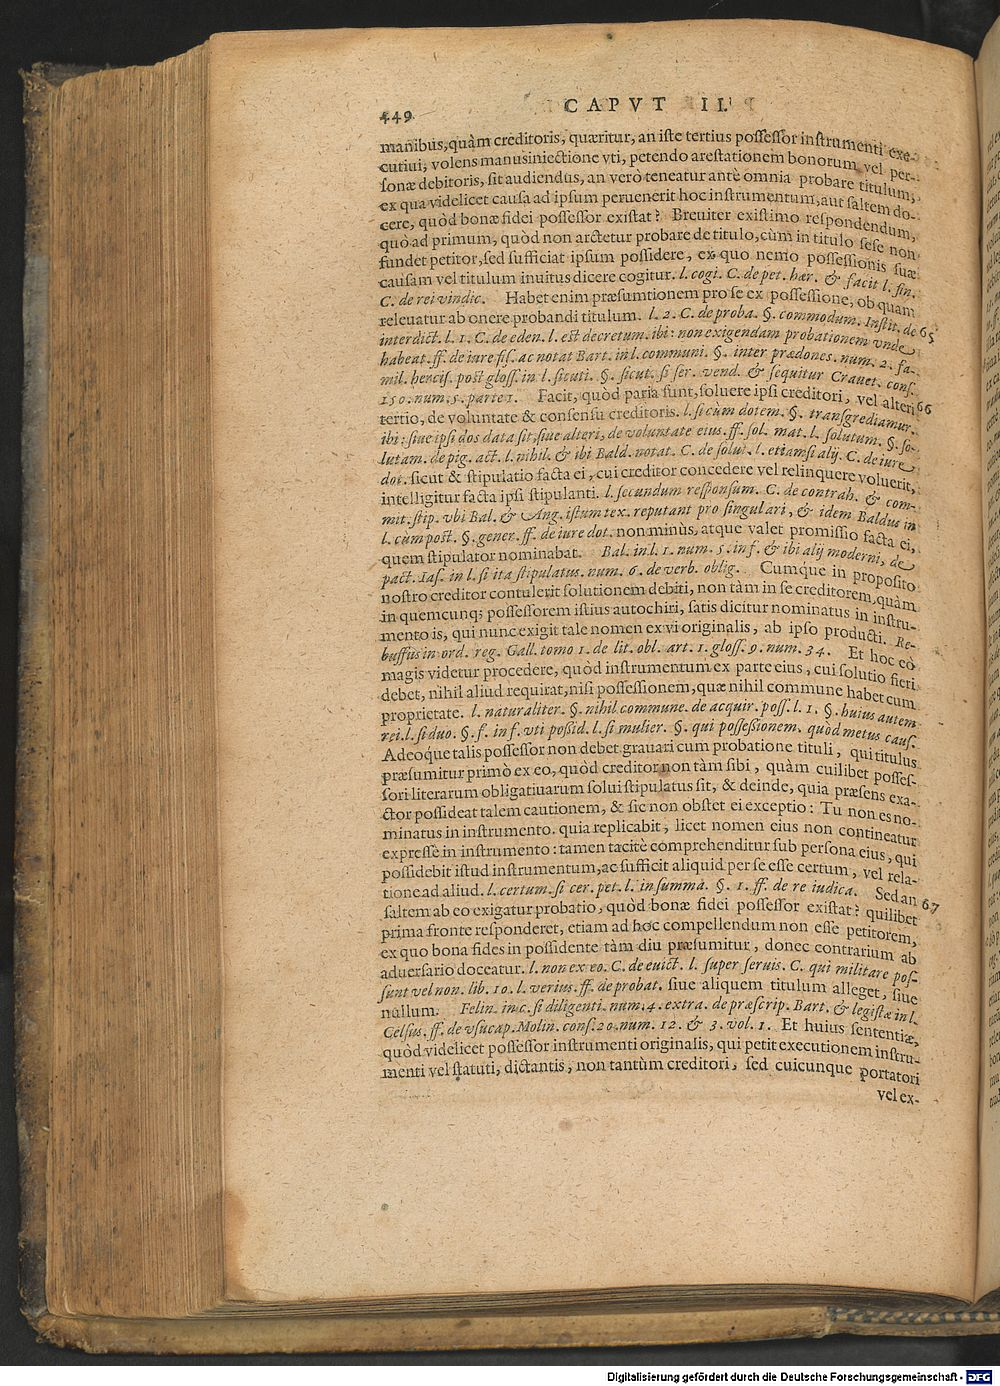 449 CAPVT II.
manibus, quàm creditoris, quæritur, an iste tertius possessor instrumenti exe-
cutiui, volens manusiniectione vti, petendo arestationem bonorum vel per-
sonæ debitoris, sit audiendus, an verò teneatur antè omnia probare titulum,
ex qua videlicet causa ad ipsum peruenerit hoc instrumentum, aut saltem do-
cere, quòd bonæ fidei possessor existat? Breuiter existimo respondendum,
quò ad primum, quòd non arctetur probare de titulo, cùm in titulo sese non
fundet petitor, sed sufficiat ipsum possidere, ex quo nemo possessionis suæ
causam vel titulum inuitus dicere cogitur. l. cogi. C. de pet. hær. & facit l. fin.
C. de rei vindic. Habet enim præsumtionem pro se ex possessione, ob quam
releuatur ab onere probandi titulum. l. 2. C. de proba. §. commodum. Instit. de 65
interdict. l. 1. C. de eden. l. est decretum. ibi: non exigendam probationem vnde
habeat. ff. de iure fis. ac notat Bart. in l. communi. §. inter prædones. num. 2. fa-
mil. hercis. post gloss. in l. sicuti. §. sicut. si ser. vend. & sequitur Crauet. cons.
150. num. 5. parte 1. Facit, quòd paria sunt, soluere ipsi creditori, vel alteri 66
tertio, de voluntate & consensu creditoris. l. si cùm dotem. §. transgrediamur.
ibi: siue ipsi dos data sit, siue alteri, de voluntate eius. ff. sol. mat. l. solutum. §. so-
lutam. de pig. act. l. nihil. & ibi Bald. notat. C. de solut. l. etiamsi alij. C. de iure
dot. sicut & stipulatio facta ei, cui creditor concedere vel relinquere voluerit,
intelligitur facta ipsi stipulanti. l. secundum responsum. C. de contrah. & com-
mit. stip. vbi Bal. & Ang. istum tex. reputant pro singulari, & idem Baldus in
l. cùm post. §. gener. ff. de iure dot. non minùs, atque valet promissio facta ei,
quem stipulator nominabat. Bal. in l. 1. num. 5. in f. & ibi alij moderni, de
pact. Ias. in l. si ita stipulatus. num. 6. de verb. oblig. Cumque in proposito
nostro creditor contulerit solutionem debiti, non tàm in se creditorem, quàm
in quemcunq; possessorem istius autochiri, satis dicitur nominatus in instru-
mento is, qui nunc exigit tale nomen ex vi originalis, ab ipso producti. Re-
buffus in ord. reg. Gall. tomo 1. de lit. obl. art. 1. gloss. 9. num. 34. Et hoc eò
magis videtur procedere, quòd instrumentum ex parte eius, cui solutio fieri
debet, nihil aliud requirat, nisi possessionem, quæ nihil commune habet cum
proprietate. l. naturaliter. §. nihil commune. de acquir. poss. l. 1. §. huius autem
rei. l. si duo. §. f. in f. vti possid. l. si mulier. §. qui possessionem. quòd metus caus.
Adeoque talis possessor non debet grauari cum probatione tituli, qui titulus
præsumitur primò ex eo, quòd creditor non tàm sibi, quàm cuilibet posses-
sori literarum obligatiuarum solui stipulatus sit, & deinde, quia præsens exa-
ctor possideat talem cautionem, & sic non obstet ei exceptio: Tu non es no-
minatus in instrumento. quia replicabit, licet nomen eius non contineatur
expressè in instrumento: tamen tacitè comprehenditur sub persona eius, qui
possidebit istud instrumentum, ac sufficit aliquid per se esse certum, vel rela-
tione ad aliud. l. certum. si cer. pet. l. in summa. §. 1. ff. de re iudica. Sed an 67
saltem ab eo exigatur probatio, quòd bonæ fidei possessor existat? quilibet
prima fronte responderet, etiam ad hoc compellendum non esse petitorem,
ex quo bona fides in possidente tàm diu præsumitur, donec contrarium ab
aduersario doceatur. l. non ex eo. C. de euict. l. super seruis. C. qui militare pos-
sunt vel non. lib. 10. l. verius. ff. de probat. siue aliquem titulum alleget, siue
nullum. Felin. in c. si diligenti. num. 4. extra. de præscrip. Bart. & legistæ in l.
Celsus. ff. de vsucap. Molin. cons. 20. num. 12. & 3. vol. 1. Et huius sententiæ,
quòd videlicet possessor instrumenti originalis, qui petit executionem instru-
menti vel statuti, dictantis, non tantùm creditori, sed cuicunque portatori
vel ex-
Digitalisierung gefördert durch die Deutsche Forschungsgemeinschaft - DFG